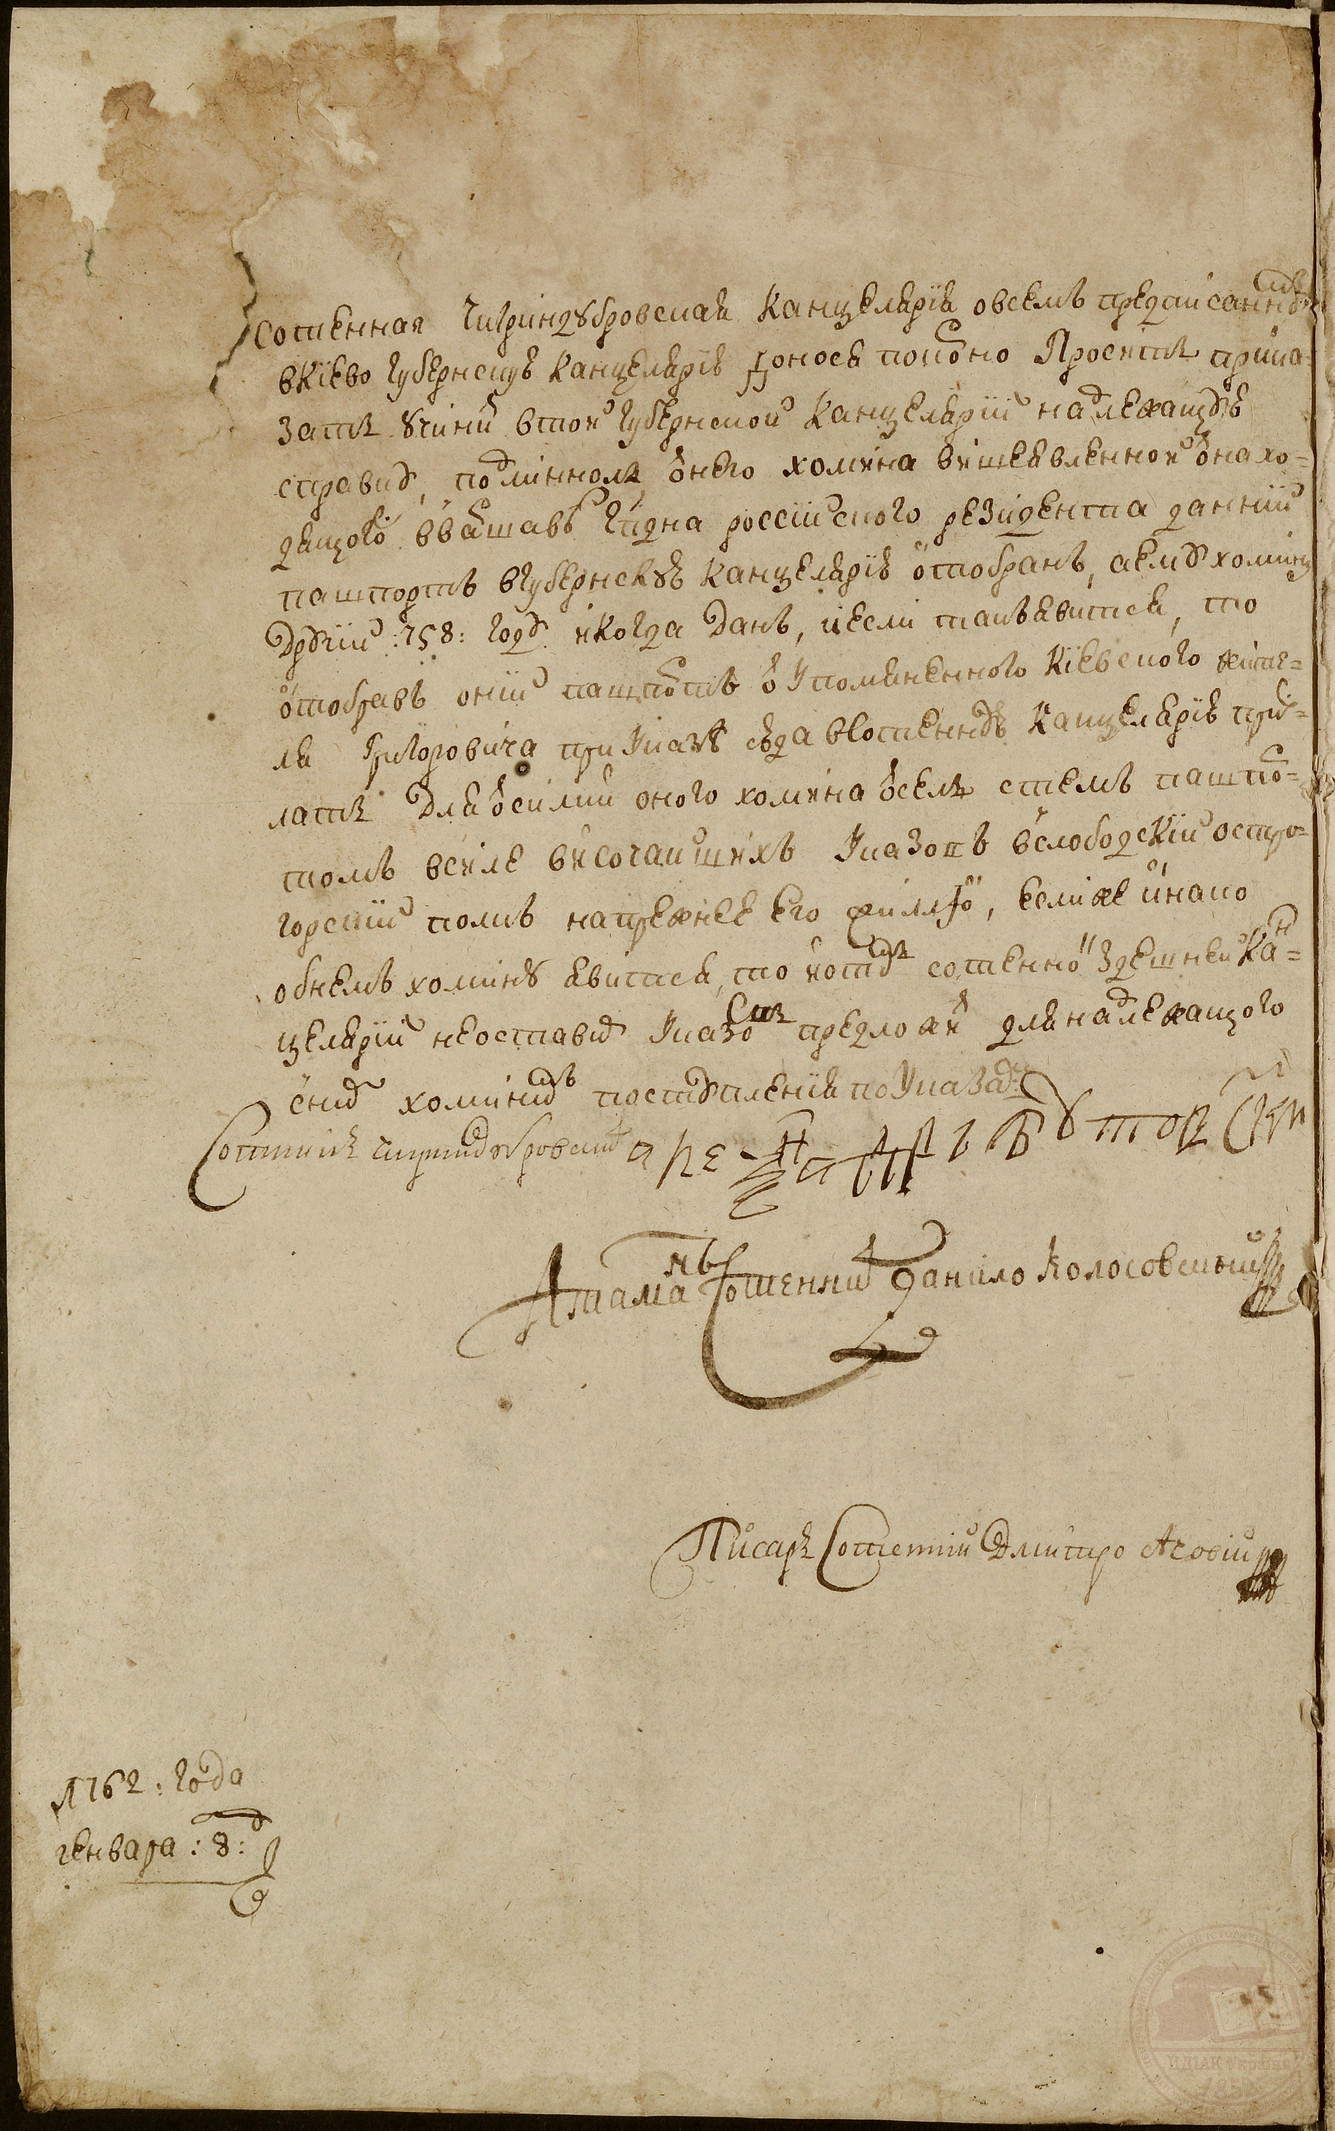 сотенная чигриндубровская канцелярія овсемъ предписанномъ
вкіево губернскую канцелярію донося покорно проситъ прика-
зать учинит втой губернской канцеляріи надлежащую
справку, подлинноль отнего хомина вишеявленной отнахо-
дящогось вваршавѣ гдна россійского резидента данній
пашпортъ вгубернскую канцелярію отобранъ, акмъ хомину
другій :758: году икогда данъ, иесли такъ явится, то
отобравъ оній пашпортъ отупомяненного кіевского жите-
ля григоровича при указѣ сюда всотенную канцелярію прис-
лать для отсилки оного хомина отселѣ стемъ пашпор-
томъ всилѣ височайшихъ указовъ вслободскій остро-
горскій полкъ напрежнее его жилля, еслиже инако
обнемъ хоминѣ явится, то иотомъ сотенной здешней кан-
целяріи неоставит указомъ предложит для надлежащого
снимъ хоминимъ поступленія по указам
Сотникъ чигриндубровский
Атаманъ Сотенній Данило Колосовскій
Писарь Сотенній Дмитро
1762: года
генвара :8: д
ЦДІАК України